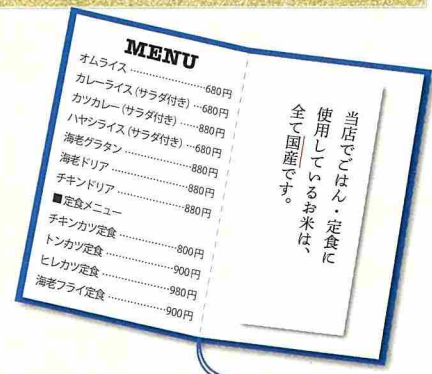 MENU
オムライス …………………680円
カレーライス（サラダ付き）…680円
カツカレー（サラダ付き）……880円
ハヤシライス（サラダ付き）…680円
海老グラタン ………………880円
海老ドリア …………………880円
チキンドリア ………………880円
■定食メニュー
チキンカツ定食 ……………800円
トンカツ定食 ………………900円
ヒレカツ定食 ………………980円
海老フライ定食 ……………900円
当店でごはん・定食に
使用しているお米は、
全て国産です。